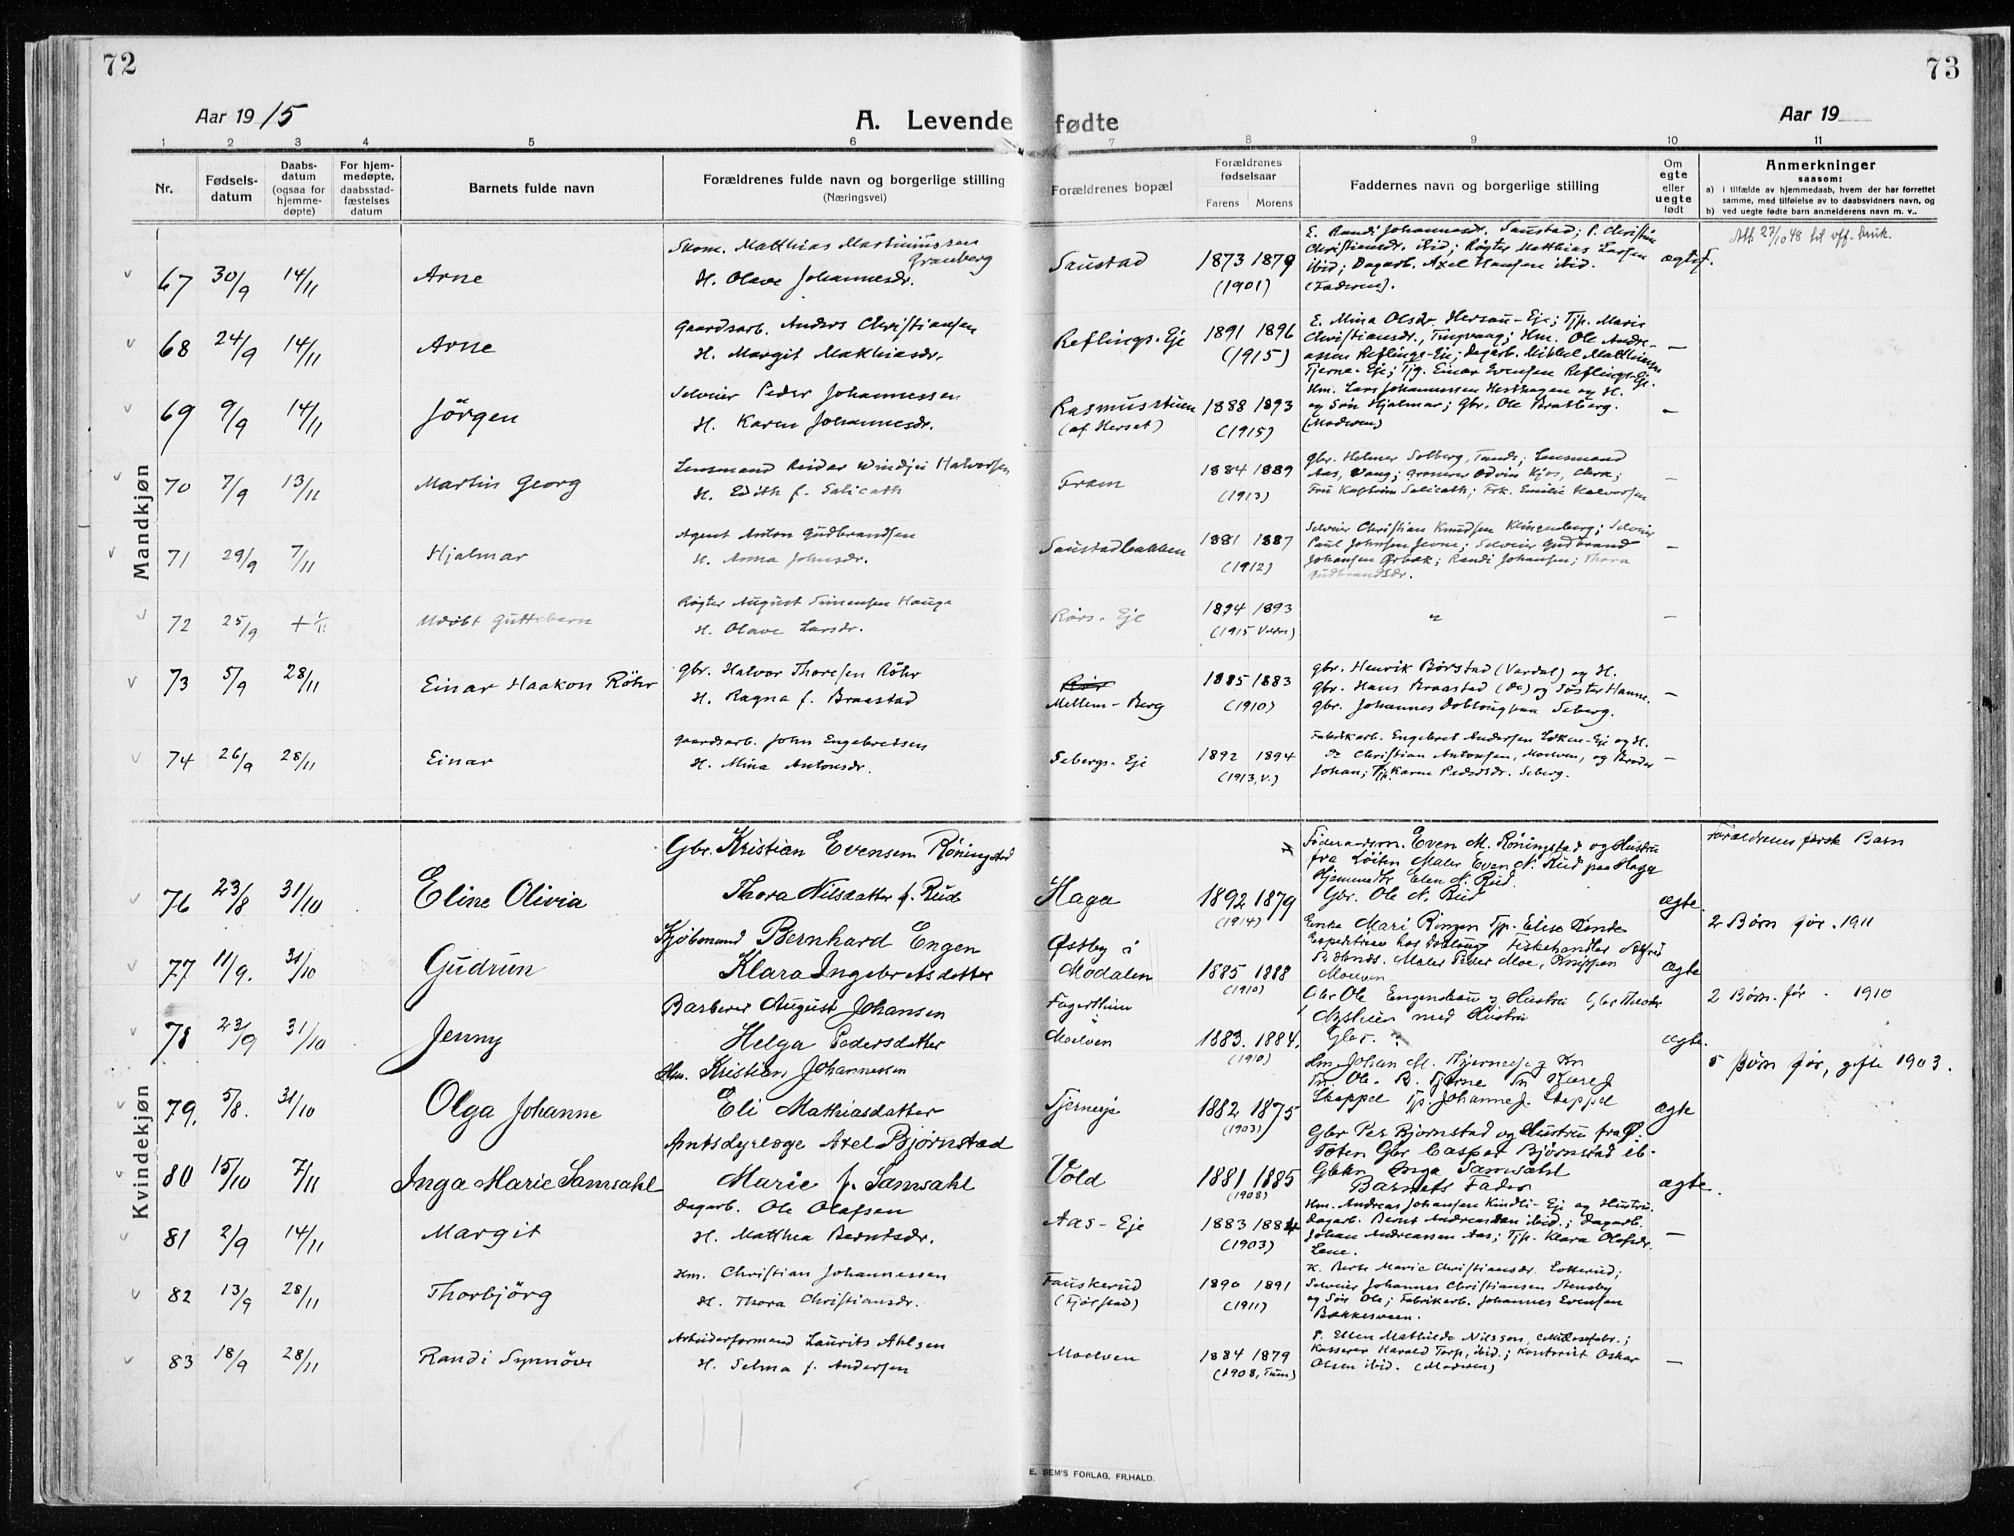 72
73
Aar 1915
A. Levende fødte
Aar 19
1 2 3 4 5 6 7 8 9 10 11
Nr.
Fødsels-
datum
Daabs-
datum
(ogsaa for
hjemme-
døpte)
For hjem-
medøpte,
daabsstad-
fæstelses
datum
Barnets fulde navn
Forældrenes fulde navn og borgerlige stilling
(Næringsvei)
Forældrenes bopæl
Forældrenes
fødselsaar
Farens Morens
Faddernes navn og borgerlige stilling
Om
egte
eller
uegte
født
Anmerkninger
saasom:
a) i tilfælde av hjemmedaab, hvem der har forrettet
samme, med tilføielse av to daabsvidners navn, og
b) ved uegte fødte barn anmelderens navn m. v..
Mandkjøn
67 30/9 14/11 Arne
Skom. Matthias Martiniussen
Granberg
H. Olave Johannesdr.
Saustad
1873 1879
(1901)
E. Randi Johannesdr. Saustad; P. Christine
Christiansdr. ibid; Røgter Matthias Larsen
ibid; Dagarb. Axel Hansen ibid.
(Faderen).
ægtef.
Att 27/10 48 til off. bruk.
68 24/9 14/11 Arne
Gaardsarb. Anders Christiansen
H. Margit Matthiasdr.
Reflings-Eje
1891 1896
(1915)
E. Mina Olsdr Hersau-Eje; Tjp. Marie
Christiansdr., Tingvang; Hm. Ole Andre-
assen Reflings-Eje; Dagarb. Mikkel Matthiassen
Tjerne-Eje; Tjg. Einar Evensen Reflings-Eje.
—
69 9/9 14/11 Jörgen
Selveier Peder Johannessen
H. Karen Johannesdr.
Rasmusstuen
(af Herset)
1888 1893
(1915)
Hm. Lars Johannessen Hesthagen og H.
og Søn Hjalmar; Gbr. Ole Bratberg.
(Moderen)
—
70 7/9 13/11 Martin Georg
Lensmand Reidar Windju Halvorsen
H. Edith f. Salicath
Fram
1884 1889
(1913)
Gbr. Helmer Solberg, Tande; Lensmand
Aas, Vang; Grosserer Odvin Kjos, Chra;
Fru Kaptein Salicath; Frk. Emilie Halvorsen
—
71 29/9 7/11 Hjalmar
Agent Anton Gudbrandsen
H. Anna Johnsdr.
Saustadbakken
1881 1887
(1912)
Selveier Christian Knudsen Klingenberg; Selveier
Paul Johnsen Jevne; Selveier Gudbrand
Johansen Ørbæk; Randi Johansen; Thora
Gudbrandsdr.
—
72 25/9 + 1/11 Udöbt Guttebarn
Røgter August Simensen Hauge
H. Olave Larsdr.
Rörs-Eje
1894 1893
(1915 Vardal)
"
—
73 5/9 28/11 Einar Haakon Röhr
Gbr. Halvor Thoresen Röhr
H. Ragna f. Braastad
Rör
Mellem-Berg
1885 1883
(1910)
Gbr. Henrik Børstad (Vardal) og H.
Gbr. Hans Braastad (do) og Søster Hanne.
Gbr. Johannes Doblougpaa Seberg.
—
74 26/9 28/11 Einar
Gaardsarb. John Engebretsen
H. Mina Antonsdr.
Sebergs-Eje
1892 1894
(1913, V.)
Fabrikarb. Engebret Andersen Løken-Eje og H.
Do Christian Antonsen, Moelven, og Broder
Johan; Tjp. Karen Pedersdr. Seberg.
—
Kvindekjøn
76 23/8 31/10 Eline Olivia
Gbr. Kristian Evensen Røningstad
Thora Nilsdatter f. Rud
Haga
1892 1879
(1914)
Föderaadsm. Even M. Røningstad og Hustru
fra Löiten Maler Even N. Rud paa Haga
Hjemmedtr Elen N. Rud.
Gbr. Ole N. Rud
ægte.
Forældrenes første Barn
77 11/9. 31/10 Gudrun
Kjøbmand Bernhard Engen
Klara Ingebretsdatter
Østby i
Modalen
1885 1888
(1910)
Enke Mari Ringen Tjp. Elise Rønde
Fiskehandler Alfred
Maler Peder Moe, Knippen
Moelven
ægte
2 Börn før. 1911
78 23/9 31/10 Jenny
Barberer August Johansen
Helga Pedersdatter
Fagerheim
Moelven
1883. 1884.
(1910)
Gbr Ole Engenshau og Hustru Gbr Theodor
Nystuen med Hustru
ægte.
2 Børn. før. 1910
79. 5/8. 31/10 Olga Johanne
Hm. Kristian Johannessen
Eli Mathiasdatter
Tjerneeje
1882 1875
(1903)
Hm Johan M. Tjerneeje
Ole. B. Tjerne
Skappel Tjp. Johanne J. Skappel
ægte
5 Børn før, gifte 1903.
80 15/10 7/11 Inga Marie Samsahl
Amtsdyrlæge Axel Bjørnstad
Marie f. Samsahl
Vold
1881 1885
(1908)
Gbr Per Bjørnstad og Hustru fra Ø.
Toten Gbr Casper Bjørnstad ib-
Inga Samsahl
Barnets Fader
ægte.
81 2/9 14/11 Margit
Dagarb. Ole Olafsen
H. Matthea Berntsdr.
Aas-Eje
1883 1884
(1903)
Hm. Andreas Johansen Kindli-Eje og Hustru.
Dagarb. Bernt Andreassen ibid.; Dagarb.
Johan Andreassen Aas; Tjp. Klara Olafsdr.
Lene.
—
82 13/9 28/11 Thorbjörg
Hm. Christian Johannessen
H. Thora Christiansdr.
Fauskerud
(Fjölstad)
1890 1891
(1911)
K. Berte Marie Christiansdr. Lotterud;
Selveier Johannes Christiansen Stensby
og Søn Ole; Fabrikarb. Johannes Evensen
Bakkesveen.
83 18/9 28/11 Randi Synnöve
Arbeiderformand Laurits Ahlsen
H. Selma f. Andersen
Moelven
1884 1879
(1908, Furn)
P. Ellen Mathilde Nilsson, Mælkefabr.;
Kasserer Harald Torp, ibid.; Kontorist Oskar
Olsen ibid. (Moderen)
—
E. SEM'S FORLAG, FR.HALD.